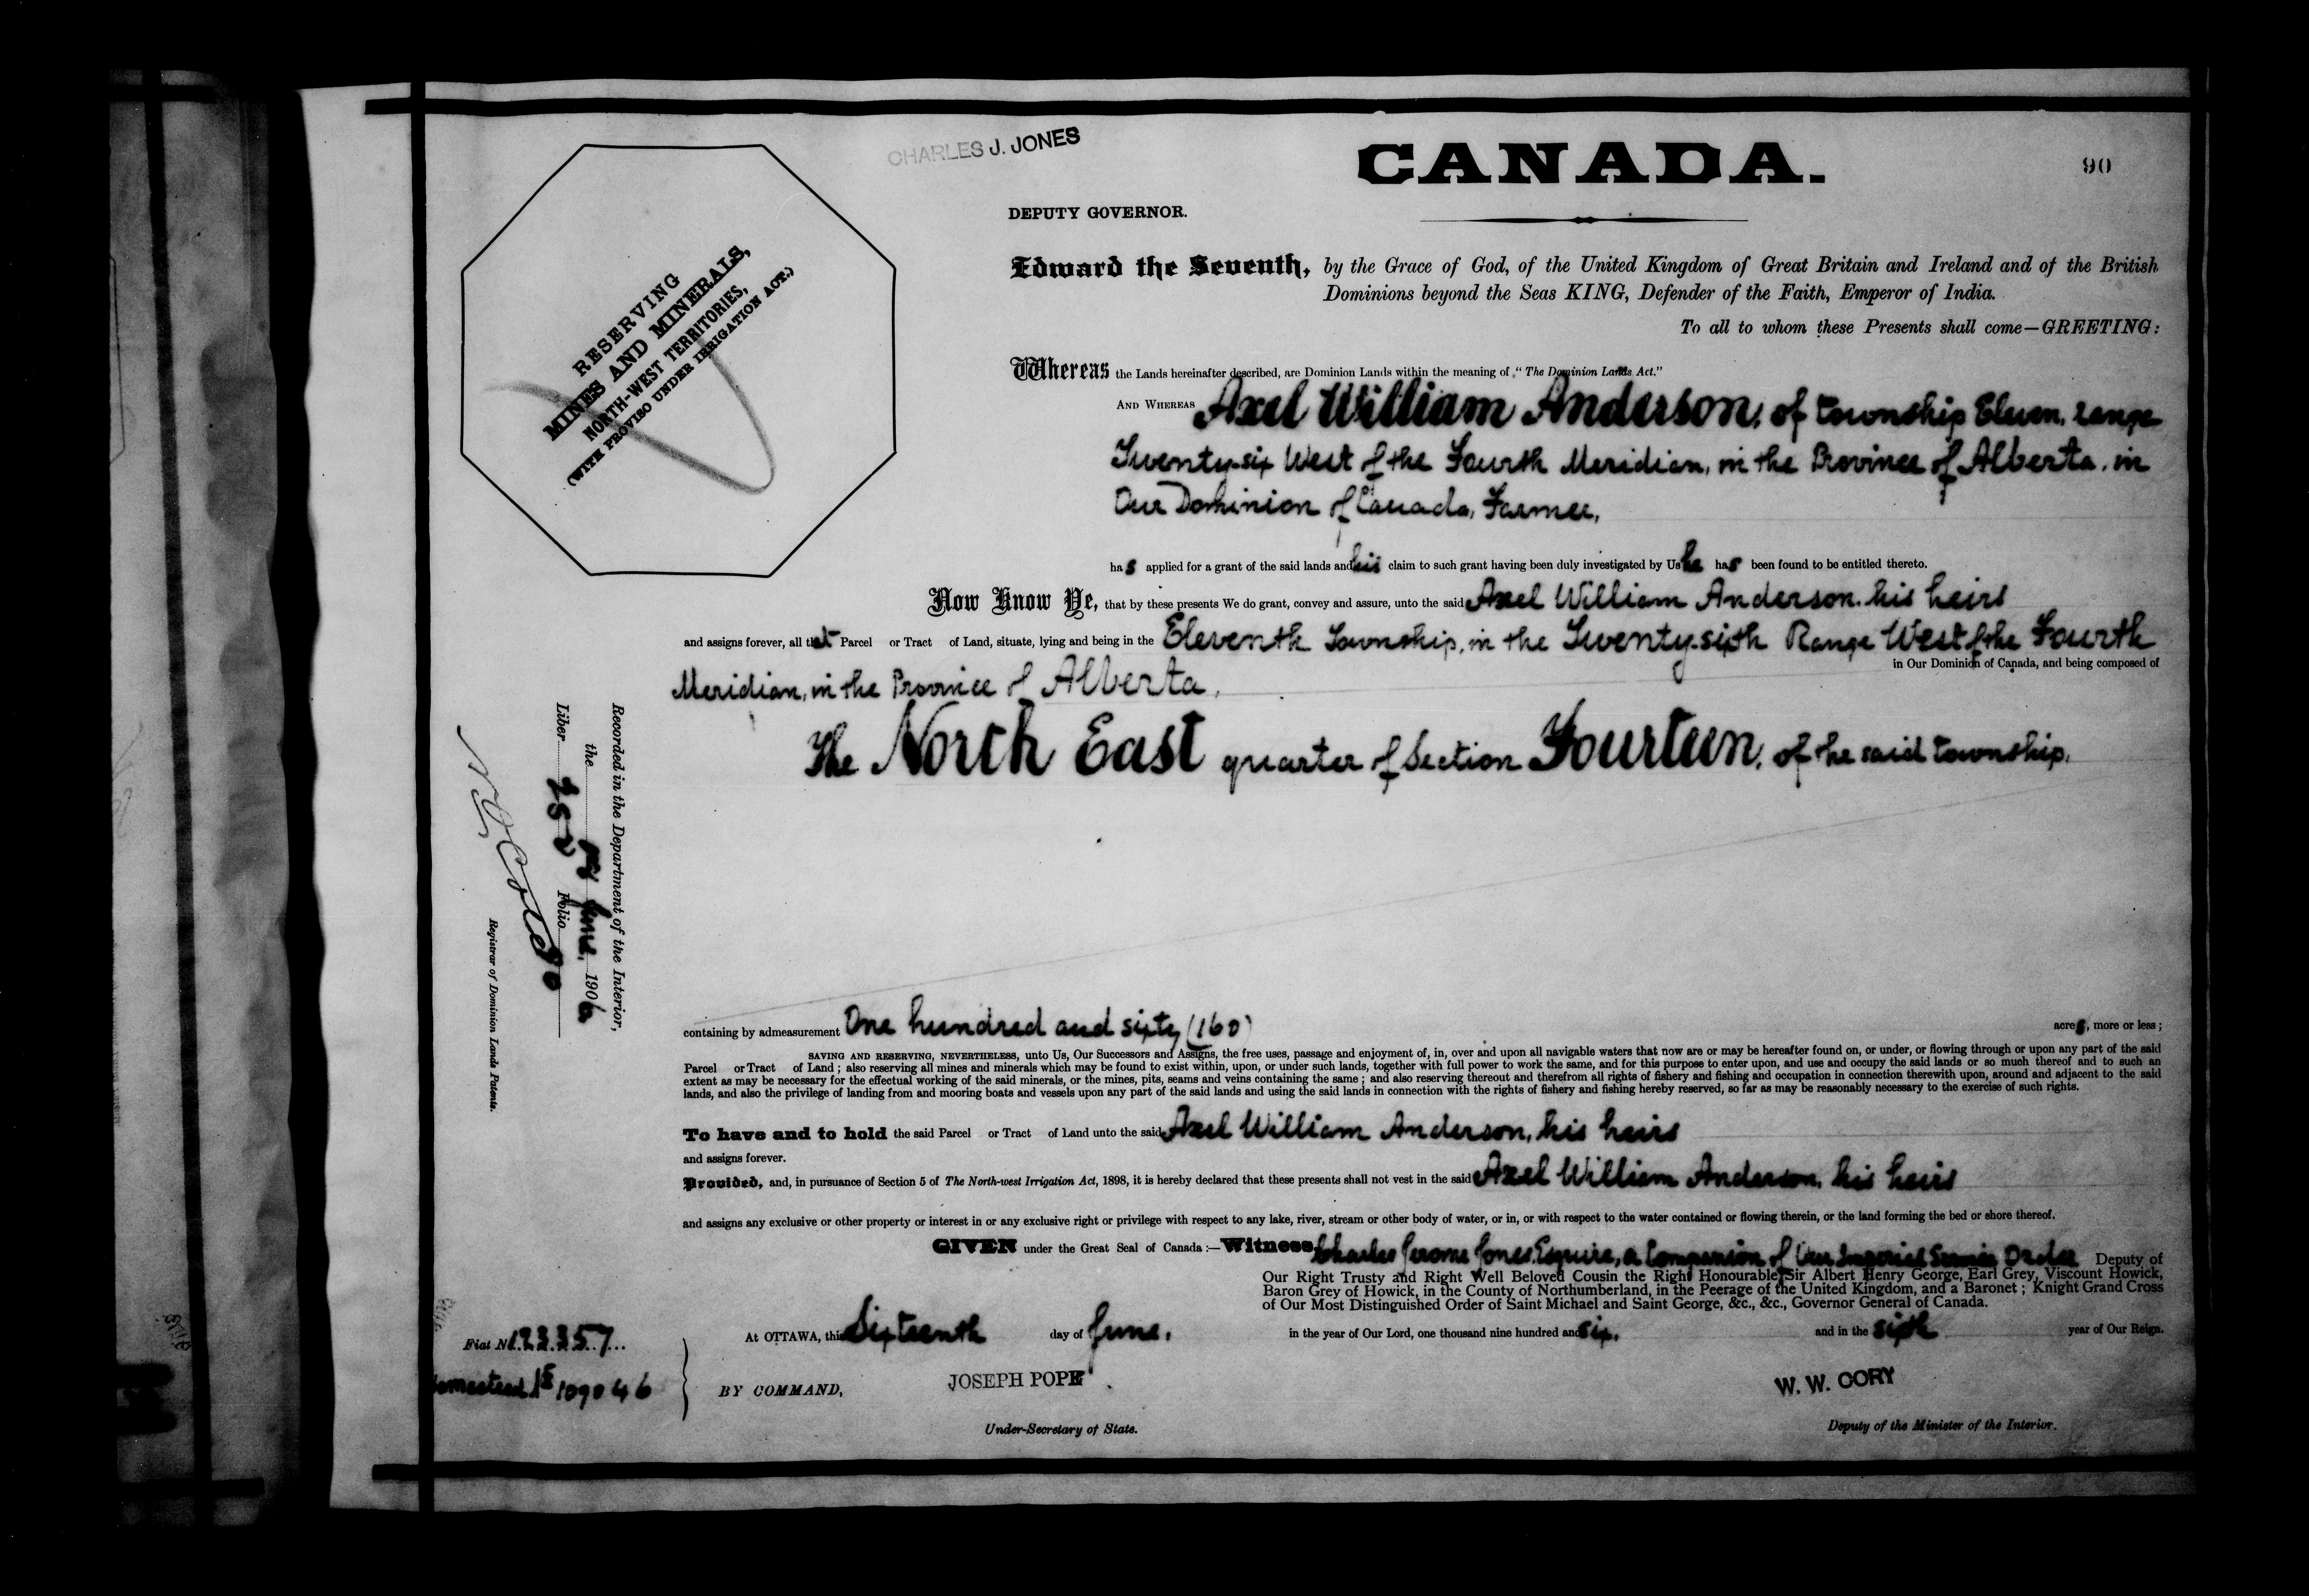 CHARLES J. JONES
CANADA.
90
DEPUTY GOVERNOR.
RESERVING
MINES AND MINERALS,
NORTH-WEST TERRITORIES,
(WITH PROVISO UNDER IRRIGATION ACT.)
Edward the Seventh, by the Grace of God, of the United Kingdom of Great Britain and Ireland and of the British
Dominions beyond the Seas KING, Defender of the Faith, Emperor of India.
To all to whom these Presents shall come—GREETING:
Whereas the Lands hereinafter described, are Dominion Lands within the meaning of "The Dominion Lands Act."
AND WHEREAS Axel William Anderson, of township Eleven, range
Twenty-six West of the Fourth Meridian, in the Province of Alberta, in
Our Dominion of Canada, Farmer,
has applied for a grant of the said lands and his claim to such grant having been duly investigated by Us he has been found to be entitled thereto.
Now Know Ye, that by these presents We do grant, convey and assure, unto the said Axel William Anderson, his heirs
and assigns forever, all that Parcel or Tract of Land, situate, lying and being in the Eleventh Township, in the Twenty-sixth Range West of the Fourth
Meridian, in the Province of Alberta, in Our Dominion of Canada, and being composed of
The North East quarter of Section Fourteen, of the said township.
Recorded in the Department of the Interior,
the June, 1906
Liber 252 Folio 90
Registrar of Dominion Lands Patents.
containing by admeasurement One hundred and sixty (160) acres, more or less;
SAVING AND RESERVING, NEVERTHELESS, unto Us, Our Successors and Assigns, the free uses, passage and enjoyment of, in, over and upon all navigable waters that now are or may be hereafter found on, or under, or flowing through or upon any part of the said
Parcel or Tract of Land; also reserving all mines and minerals which may be found to exist within, upon, or under such lands, together with full power to work the same, and for this purpose to enter upon, and use and occupy the said lands or so much thereof and to such an
extent as may be necessary for the effectual working of the said minerals, or the mines, pits, seams and veins containing the same; and also reserving thereout and therefrom all rights of fishery and fishing and occupation in connection therewith upon, around and adjacent to the said
lands, and also the privilege of landing from and mooring boats and vessels upon any part of the said lands and using the said lands in connection with the rights of fishery and fishing hereby reserved, so far as may be reasonably necessary to the exercise of such rights.
To have and to hold the said Parcel or Tract of Land unto the said Axel William Anderson, his heirs
and assigns forever.
Provided, and, in pursuance of Section 5 of The North-west Irrigation Act, 1898, it is hereby declared that these presents shall not vest in the said Axel William Anderson, his heirs
and assigns any exclusive or other property or interest in or any exclusive right or privilege with respect to any lake, river, stream or other body of water, or in, or with respect to the water contained or flowing therein, or the land forming the bed or shore thereof.
GIVEN under the Great Seal of Canada:—Witness Charles Jerome Jones, Esquire, a Companion of Our Imperial Service Order Deputy of
Our Right Trusty and Right Well Beloved Cousin the Right Honourable Sir Albert Henry George, Earl Grey, Viscount Howick,
Baron Grey of Howick, in the County of Northumberland, in the Peerage of the United Kingdom, and a Baronet; Knight Grand Cross
of Our Most Distinguished Order of Saint Michael and Saint George, &c., &c., Governor General of Canada.
At OTTAWA, this Sixteenth day of June, in the year of Our Lord, one thousand nine hundred and six, and in the sixth year of Our Reign.
Fiat No 123357
Homestead 109046
BY COMMAND,
JOSEPH POPE
Under-Secretary of State.
W. W. CORY
Deputy of the Minister of the Interior.